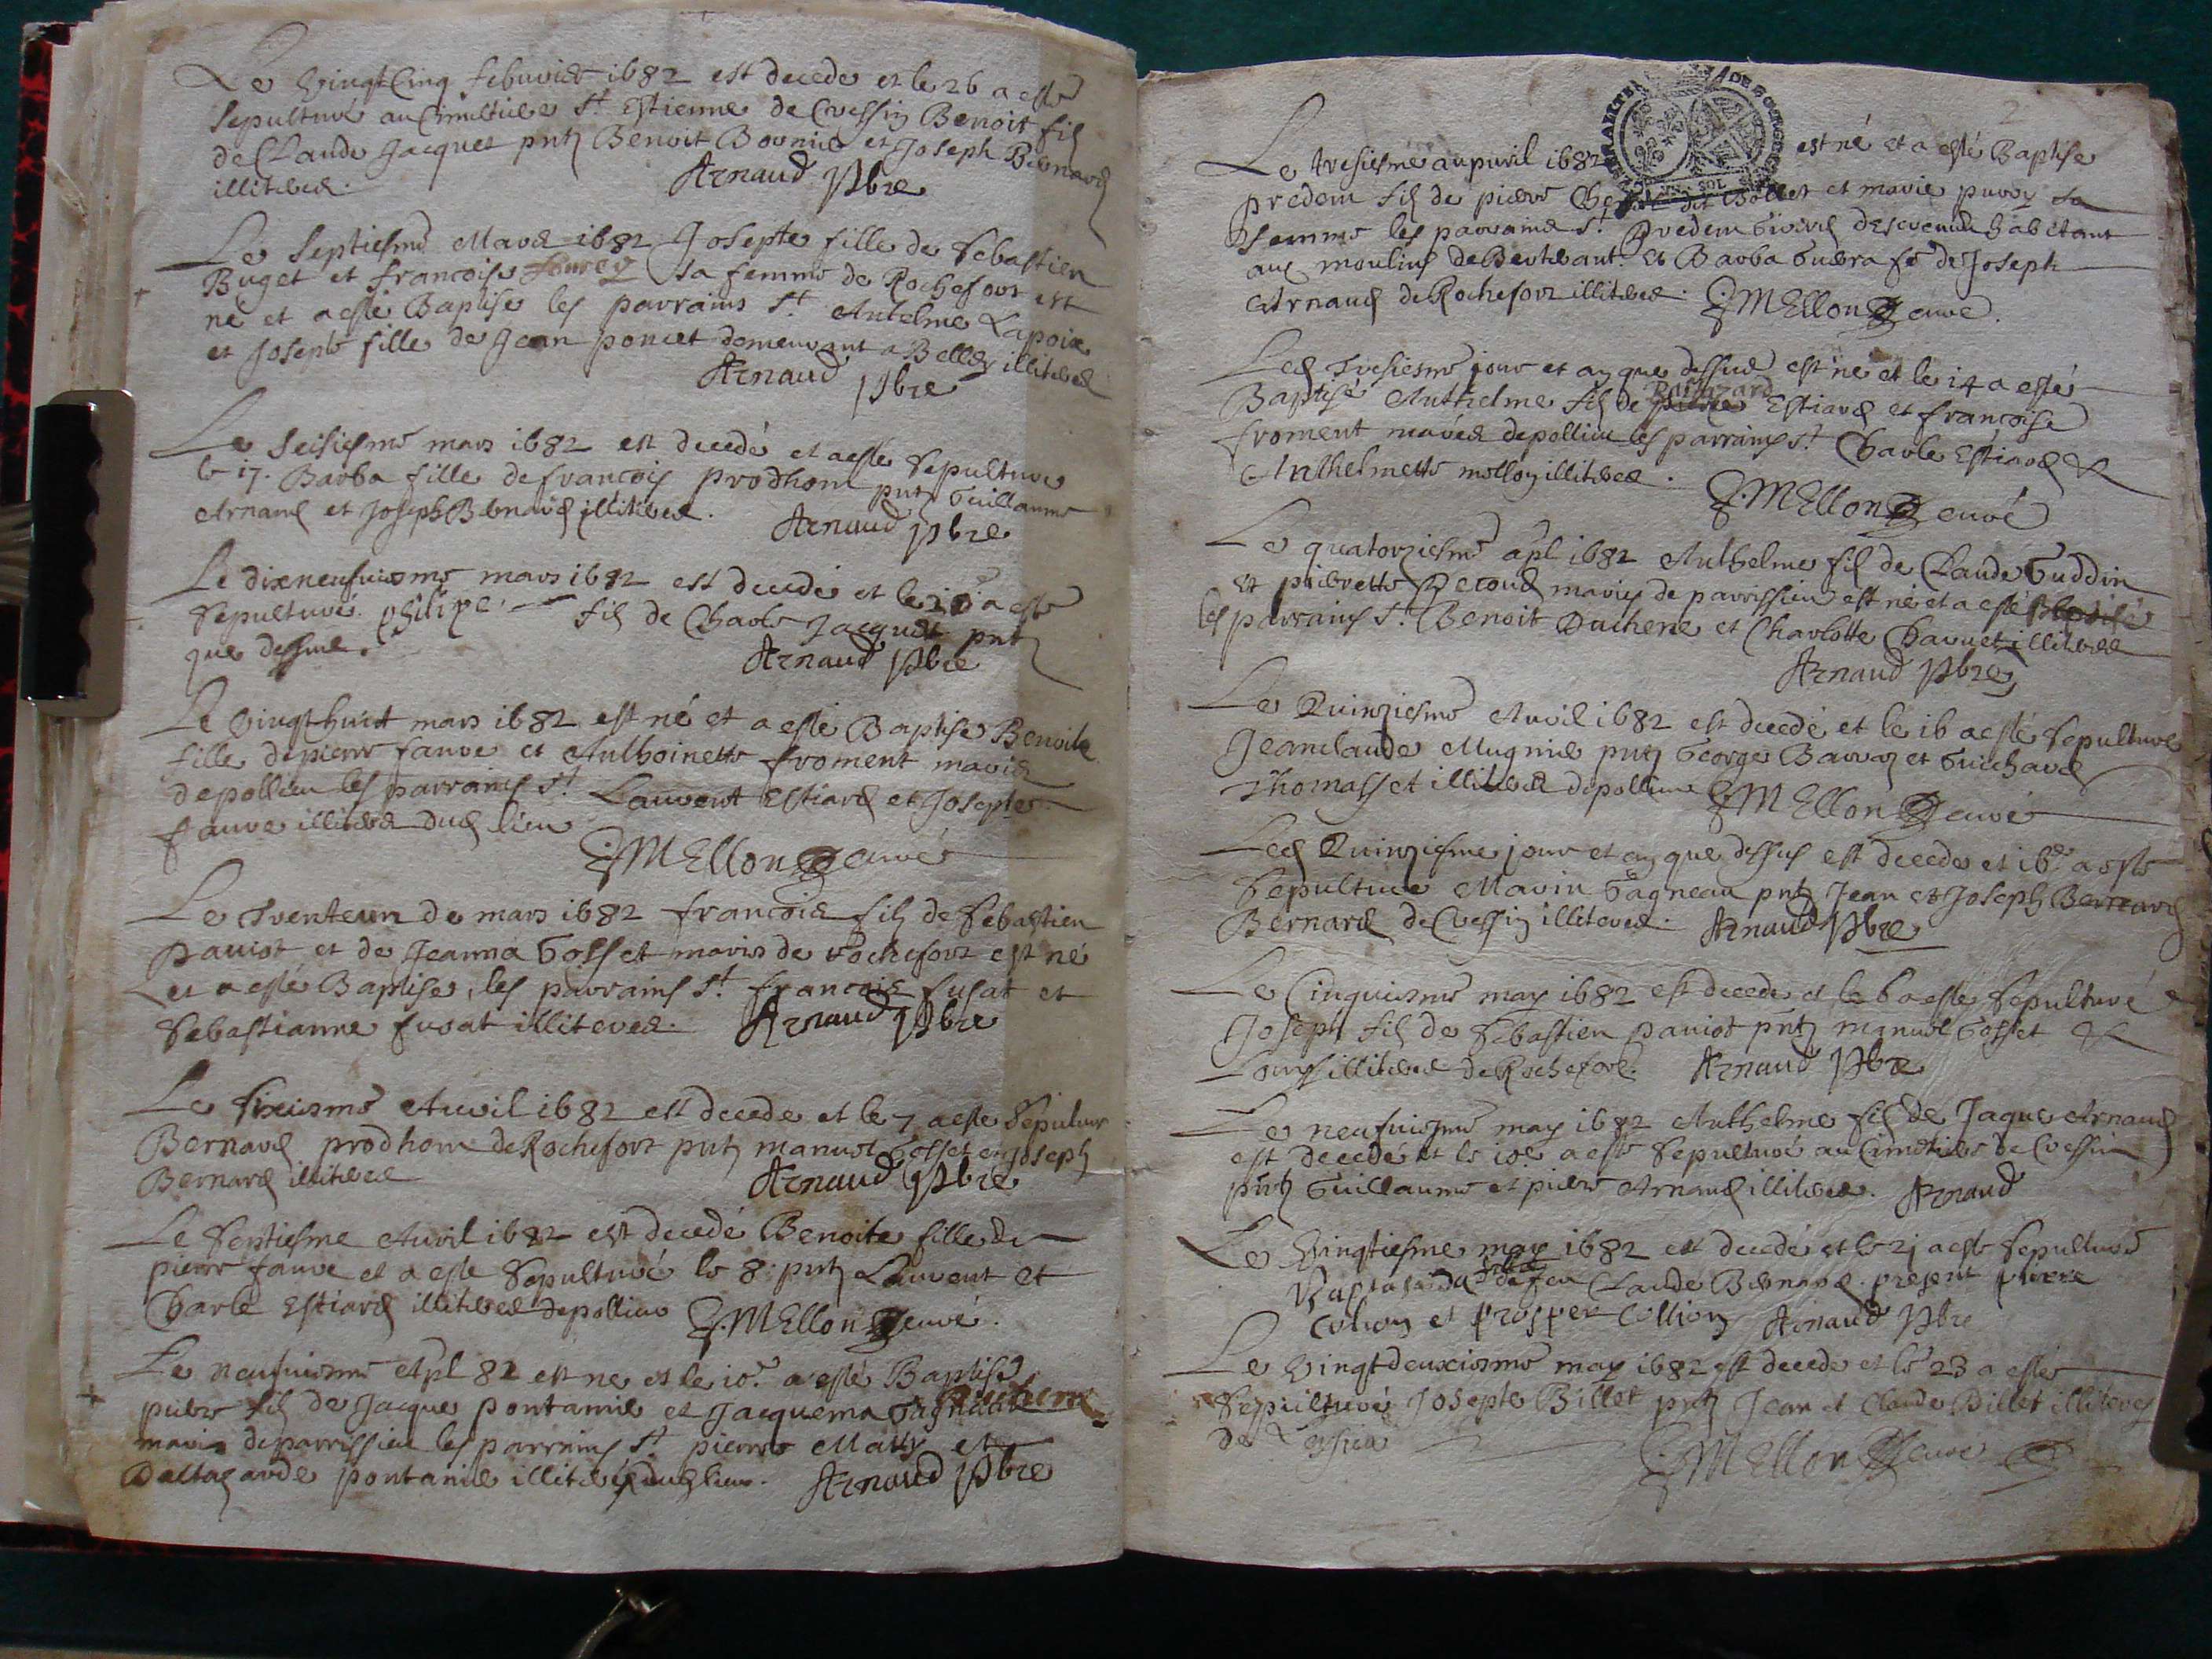 Le vingt Cinq febuvier 1682 est decede et le 26 a esté
sepulturé au Cimitiere St. Estienne de Cressin Benoit fils
de Claude Jacquet pnts Benoit Bournier et Joseph Bernard
illiteres. Arnaud Pbre
Le septiesme Mars 1682 Josepte fille de Sebastien
Buget et francoise sa femme de Rochefort est
né et a esté Baptise les parrains St. Antelme Lapoix
et Josepte fille de Jean poncet demeurant a Belley illiteres
Arnaud Pbre
Le seisiesme mars 1682 est decedé et a esté sepulturé
le 17. Barba fille de francois prodhom pnts Guillaume
Arnaud et Joseph Bernard illiteres. Arnaud Pbre
Le dixneufviesme mars 1682 est decedé et le a esté
sepulturé. philipe. fils de Charle Jacquet pnts
que dessus. Arnaud Pbre
Le vingt huict mars 1682 est né et a esté Baptise Benoite
fille de pierre fauve et Anthoinette froment mariés
de pollieu les parrains St. Laurent Estiard et Josepte
fauve illiteres dud lieu
MEllon curé
Le trenteun de mars 1682 francois fils de Sebastien
paviot et de Jeanna Gosset mariés de rochefort est né
et a esté Baptise, les parrains St. francois fusat et
Sebastianne fusat illiteres. Arnaud Pbre
Le sixiesme Avril 1682 est decede et le 7 a esté sepulturé
Bernard prodhom de Rochefort pnts manuel Gosset et Joseph
Bernard illiteres Arnaud Pbre
Le Septiesme Avril 1682 est decedé Benoite fille de
pierre fauve et a esté sepulturé le 8. pnts Laurent et
Charle Estiard illiteres de pollieu MEllon curé.
Le neufviesme Apl 82 est ne et le 10e. a esté Baptisé
pierre fils de Jacques pontanier et Jacquema Duchene
mariés de parrissieu les parrains St. pierre Matty et
Baltazarde pontanier illiteres dud lieu. Arnaud Pbre
Le tresiesme 1682 est né et a esté Baptise
predem fils de pierre dit Bollet et marie sa
femme les parrains St. predem habitant
aux moulins de Et Barba fe de Joseph
Arnaud de Rochefort illiteres. MEllon curé.
Led Tresiesme jour et an que dessus est né et le 14 a esté
Baptisé Anthelme fils de Baltazard Estiard et francoise
froment mariés de pollieu les parrains St. Charle Estiard et
Anthelmette mollon illiteres.
MEllon curé
Le quatorziesme apl 1682 Anthelme fils de Claude Guddin
Et pierrette mariés de parrissieu est né et a esté
les parrains St. Benoit Duchene et Charlotte illiteres
Arnaud Pbre
Le Quinziesme Avril 1682 est decedé et le 16 a esté sepulturé
Jeanclaude Mugnier pnts George Barraz et Guichard
Thomasset illiteres de pollieu MEllon curé
Led Quinziesme jour et an que dessus est decede et 16e a esté
Sepulturé Marin Gagneau pnts Jean et Joseph Bernard
Bernard de Cressin illiteres. Arnaud Pbre
Le Cinquiesme may 1682 est decede et le 6 a esté Sepulturé
Joseph fils de Sebastien paviot pnts manuel Gosset et
Louys illiteres de Rochefort. Arnaud Pbre
Le neufviesme may 1682 Anthelme fils de Jaque Arnaud
est decedé et le 10e a esté Sepulturé au Cimetiere de Cressin
pnts Guillaume et pierre Arnaud illiteres. Arnaud
Le vingtiesme may 1682 est decedé et le 21 a esté sepulturé
fille de feu Claude Bernard. present pierre
Collion et prosper Collion Arnaud Pbre
Le vingt deuxiesme may 1682 est decede et le 23 a esté
Sepulturé Josepte Billet pnts Jean et Claude Billet illiteres
de
MEllon curé